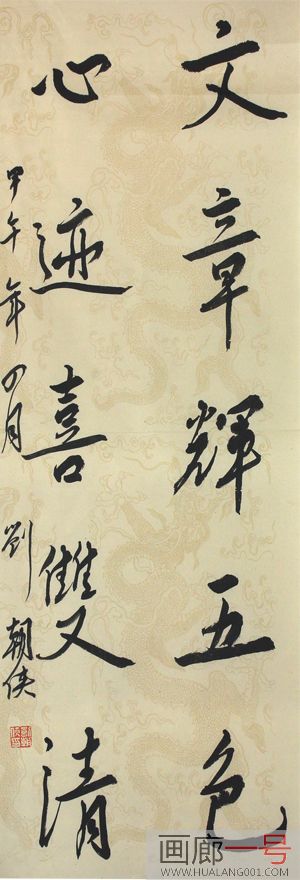 文章輝五色
心迹喜雙清
甲午年四月 劉朝侠
画廊一号
WWW.HUALANG001.COM